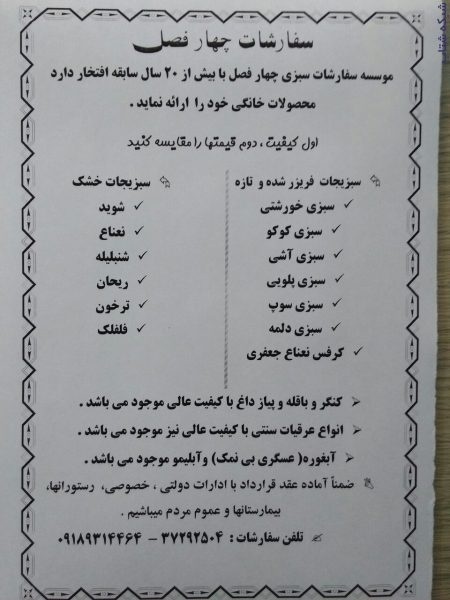 شبکه شتاب
سفارشات چهار فصل
موسسه سفارشات سبزی چهار فصل با بیش از ۲۰ سال سابقه افتخار دارد
محصولات خانگی خود را ارائه نماید .
اول کیفیت ، دوم قیمتها را مقایسه کنید
سبزیجات فریزر شده و تازه
سبزی خورشتی
سبزی کوکو
سبزی آشی
سبزی پلویی
سبزی سوپ
سبزی دلمه
کرفس نعناع جعفری
سبزیجات خشک
شوید
نعناع
شنبلیله
ریحان
ترخون
فلفلک
کنگر و باقله و پیاز داغ با کیفیت عالی موجود می باشد .
انواع عرقیات سنتی با کیفیت عالی نیز موجود می باشد .
آبغوره( عسگری بی نمک) وآبلیمو موجود می باشد .
ضمناً آماده عقد قرارداد با ادارات دولتی ، خصوصی، رستورانها،
بیمارستانها و عموم مردم میباشیم .
تلفن سفارشات : ۳۷۲۹۲۵۰۴ – ۰۹۱۸۹۳۱۴۴۶۴